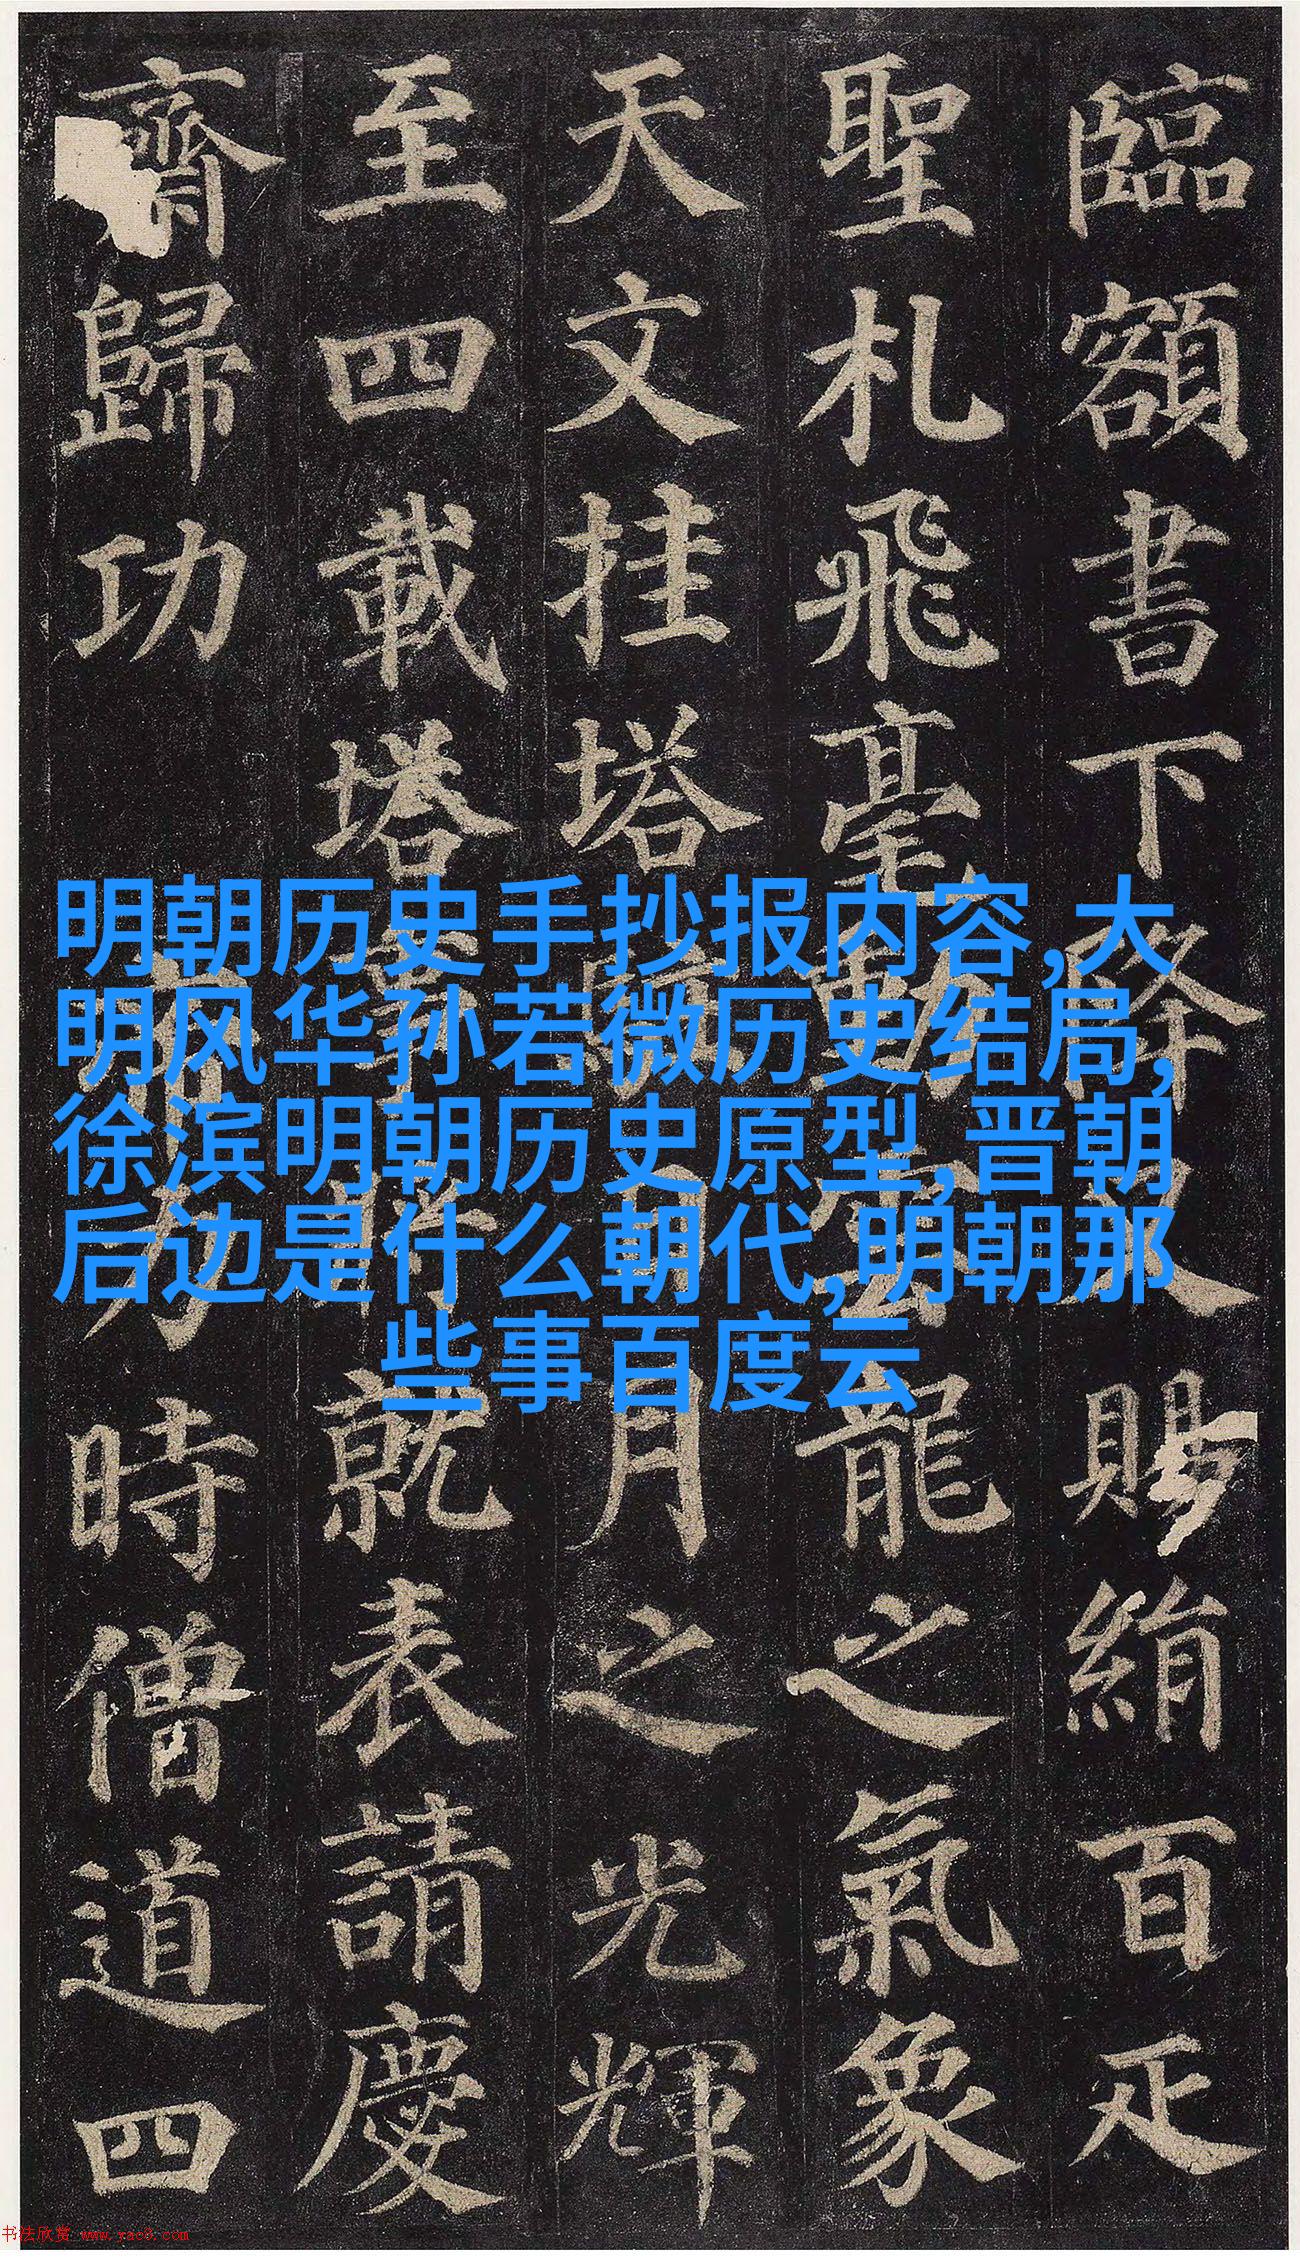 臨額書下降又賜絹百疋
聖札飛毫動雲龍之氣象
天文挂塔駐日月之光輝
至四載塔事將就表請慶
齋歸功帝力時僧道四
明朝历史手抄报内容,大
明风华孙若微历史结局,
徐滨明朝历史原型,晋朝
后边是什么朝代,明朝那
些事百度云
书法欣赏 www.yac8.com